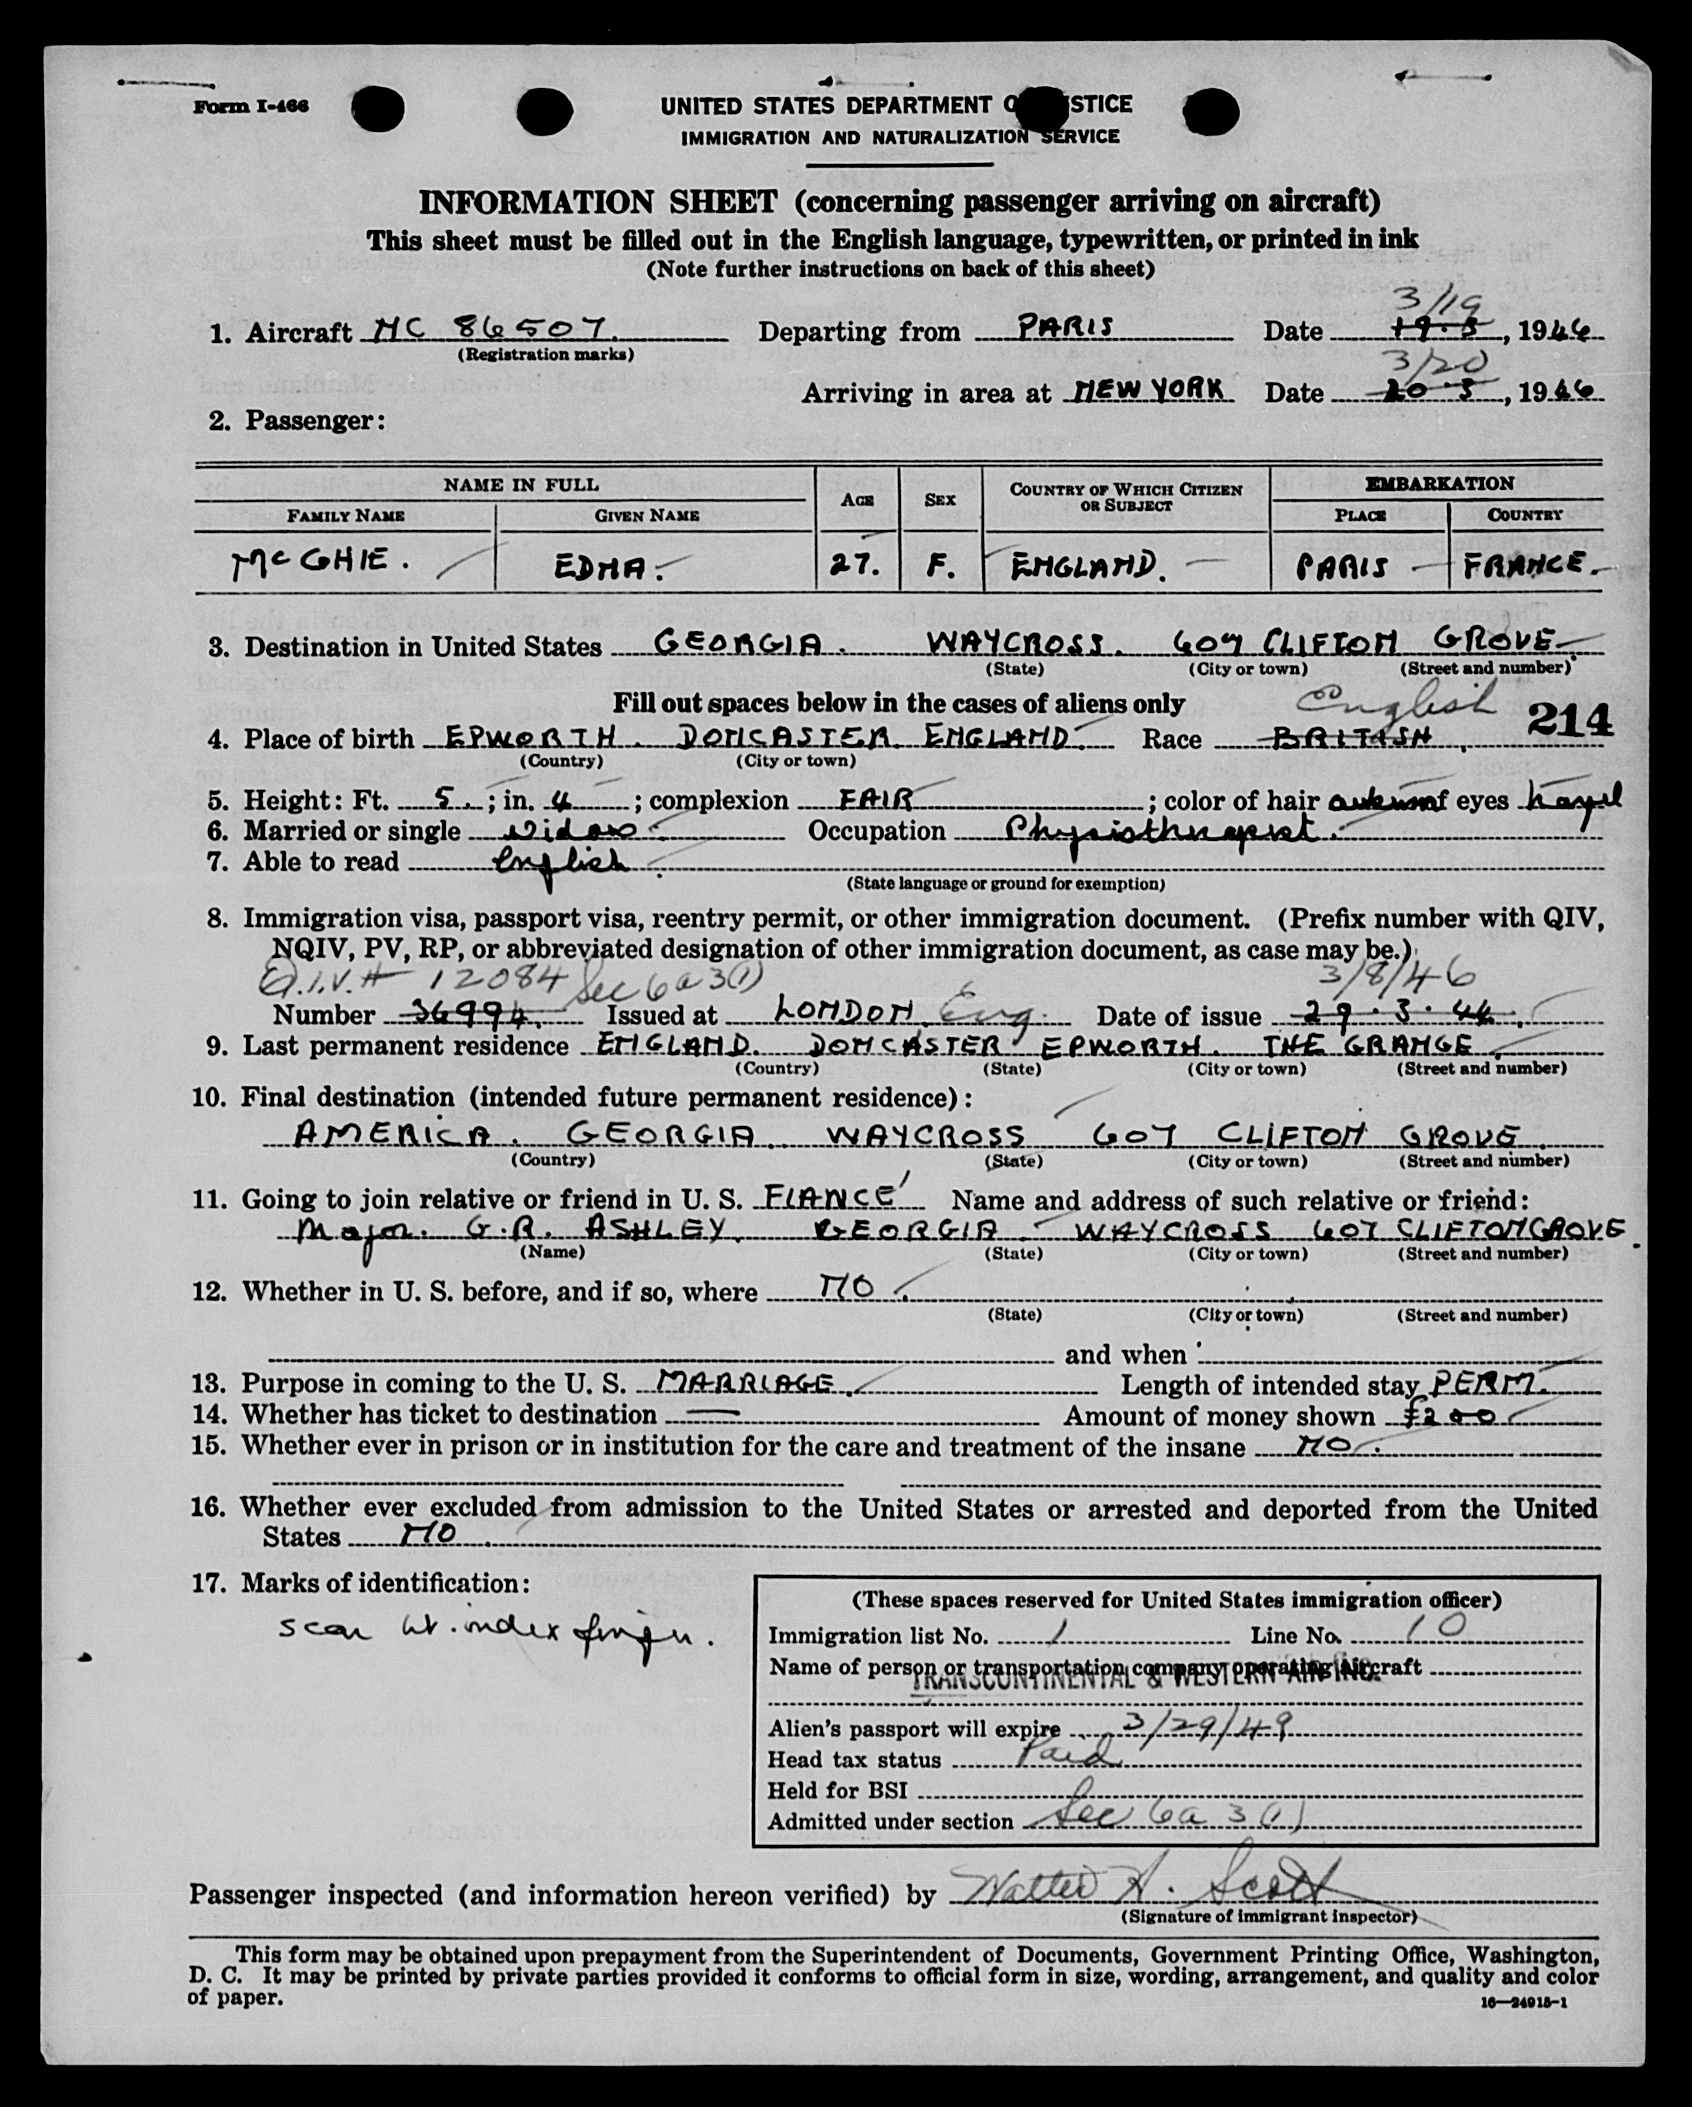 Form I-466
UNITED STATES DEPARTMENT O STICE
IMMIGRATION AND NATURALIZATION SERVICE
INFORMATION SHEET (concerning passenger arriving on aircraft)
This sheet must be filled out in the English language, typewritten, or printed in ink
(Note further instructions on back of this sheet)
3/19
1. Aircraft NC 86507. Departing from PARIS Date 19.3, 1946
(Registration marks)
3/20
Arriving in area at NEW YORK Date 20.3, 1946
2. Passenger:
NAME IN FULL AGE SEX COUNTRY OF WHICH CITIZEN OR SUBJECT EMBARKATION
FAMILY NAME GIVEN NAME PLACE COUNTRY
McGHIE. EDNA. 27. F. ENGLAND. PARIS FRANCE.
3. Destination in United States GEORGIA. WAYCROSS. 607 CLIFTON GROVE
(State) (City or town) (Street and number)
Fill out spaces below in the cases of aliens only
English 214
4. Place of birth EPWORTH. DONCASTER. ENGLAND. Race BRITISH.
(Country) (City or town)
5. Height: Ft. 5.; in. 4; complexion FAIR; color of hair auburn eyes hazel
6. Married or single Widow. Occupation Physiotherapist.
7. Able to read English.
(State language or ground for exemption)
8. Immigration visa, passport visa, reentry permit, or other immigration document. (Prefix number with QIV,
NQIV, PV, RP, or abbreviated designation of other immigration document, as case may be.)
Q.I.V.# 12084 Sec 6a3(1) 3/8/46
Number 36994. Issued at LONDON. Eng. Date of issue 29.3.44.
9. Last permanent residence ENGLAND. DONCASTER EPWORTH. THE GRANGE.
(Country) (State) (City or town) (Street and number)
10. Final destination (intended future permanent residence):
AMERICA. GEORGIA. WAYCROSS 607 CLIFTON GROVE.
(Country) (State) (City or town) (Street and number)
11. Going to join relative or friend in U. S. FIANCE' Name and address of such relative or friend:
Major. G.R. ASHLEY. GEORGIA - WAYCROSS 607 CLIFTON GROVE.
(Name) (State) (City or town) (Street and number)
12. Whether in U. S. before, and if so, where NO.
(State) (City or town) (Street and number)
and when
13. Purpose in coming to the U. S. MARRIAGE. Length of intended stay PERM.
14. Whether has ticket to destination — Amount of money shown £200
15. Whether ever in prison or in institution for the care and treatment of the insane NO.
16. Whether ever excluded from admission to the United States or arrested and deported from the United
States NO.
17. Marks of identification:
scar lt. index finger.
(These spaces reserved for United States immigration officer)
Immigration list No. 1 Line No. 10
Name of person or transportation company operating aircraft
TRANSCONTINENTAL & WESTERN AIR INC.
Alien's passport will expire 3/29/49
Head tax status Paid
Held for BSI
Admitted under section Sec 6a 3(1)
Passenger inspected (and information hereon verified) by Walter H. Scott
(Signature of immigrant inspector)
This form may be obtained upon prepayment from the Superintendent of Documents, Government Printing Office, Washington,
D. C. It may be printed by private parties provided it conforms to official form in size, wording, arrangement, and quality and color
of paper.
16—24915-1